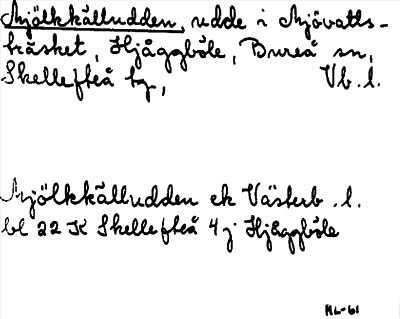 Mjölkkälludden, udde i Mjövatts-
träsket, Hjåggböle, Bureå sn,
Skellefteå tg, Vb. l.
Mjölkkälludden ek Västerb. l.
bl 22 K Skellefteå 4 j Hjåggböle
HL-61